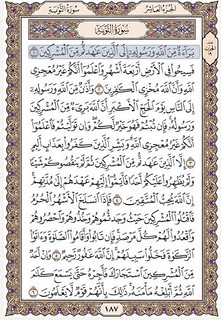 الجزء العاشر
سورة التوبة
سورة التوبة
براءة من الله ورسوله إلى الذين عهدتم من المشركين ١
فسيحوا في الأرض أربعة أشهر واعلموا أنكم غير معجزي
الله وأن الله مخزي الكفرين ٢ وأذن من الله ورسوله إلى
الناس يوم الحج الأكبر أن الله بريء من المشركين
ورسوله فإن تبتم فهو خير لكم وإن توليتم فاعلموا
أنكم غير معجزي الله وبشر الذين كفروا بعذاب أليم
٣ إلا الذين عهدتم من المشركين ثم لم ينقصوكم شيئا
ولم يظهروا عليكم أحدا فأتموا إليهم عهدهم إلى مدتهم
إن الله يحب المتقين ٤ فإذا انسلخ الأشهر الحرم
فاقتلوا المشركين حيث وجدتموهم وخذوهم واحصروهم
واقعدوا لهم كل مرصد فإن تابوا وأقاموا الصلوة وءاتوا
الزكوة فخلوا سبيلهم إن الله غفور رحيم ٥ وإن أحد
من المشركين استجارك فأجره حتى يسمع كلم
الله ثم أبلغه مأمنه ذلك بأنهم قوم لا يعلمون ٦
١٨٧